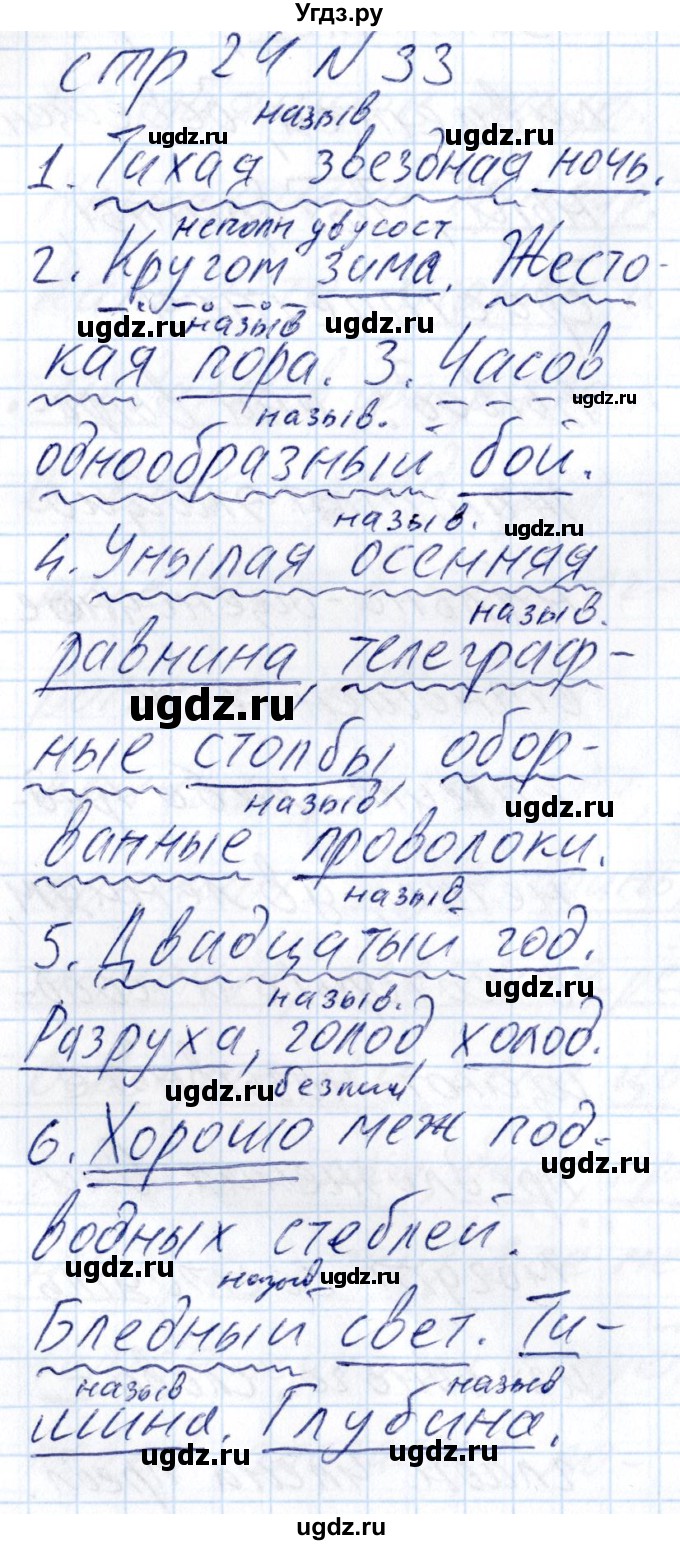 Угдз.ру
стр 24 N 33
назыв
ugdz.ru ugdz.ru
1. Тихая звездная ночь.
неполн двусост
2. Кругом зима. Жесто-
ugdz.ru назыв ugdz.ru
кая пора. 3. Часов
назыв. ugdz.ru
однообразный бой.
назыв. ugdz.ru
4. Унылая осенняя
назыв.
равнина, телеграф-
ugdz.ru
ные столбы, обор-
назыв ugdz.ru
ванные проволоки.
назыв
5. Двадцатый год.
назыв. ugdz.ru
Разруха, голод, холод.
ugdz.ru безлич
6. Хорошо меж под-
ugdz.ru
водных стеблей.
ugdz.ru назыв ugdz.ru
Бледный свет. Ти-
назыв назыв
шина. Глубина.
ugdz.ru ugdz.ru
ugdz.ru